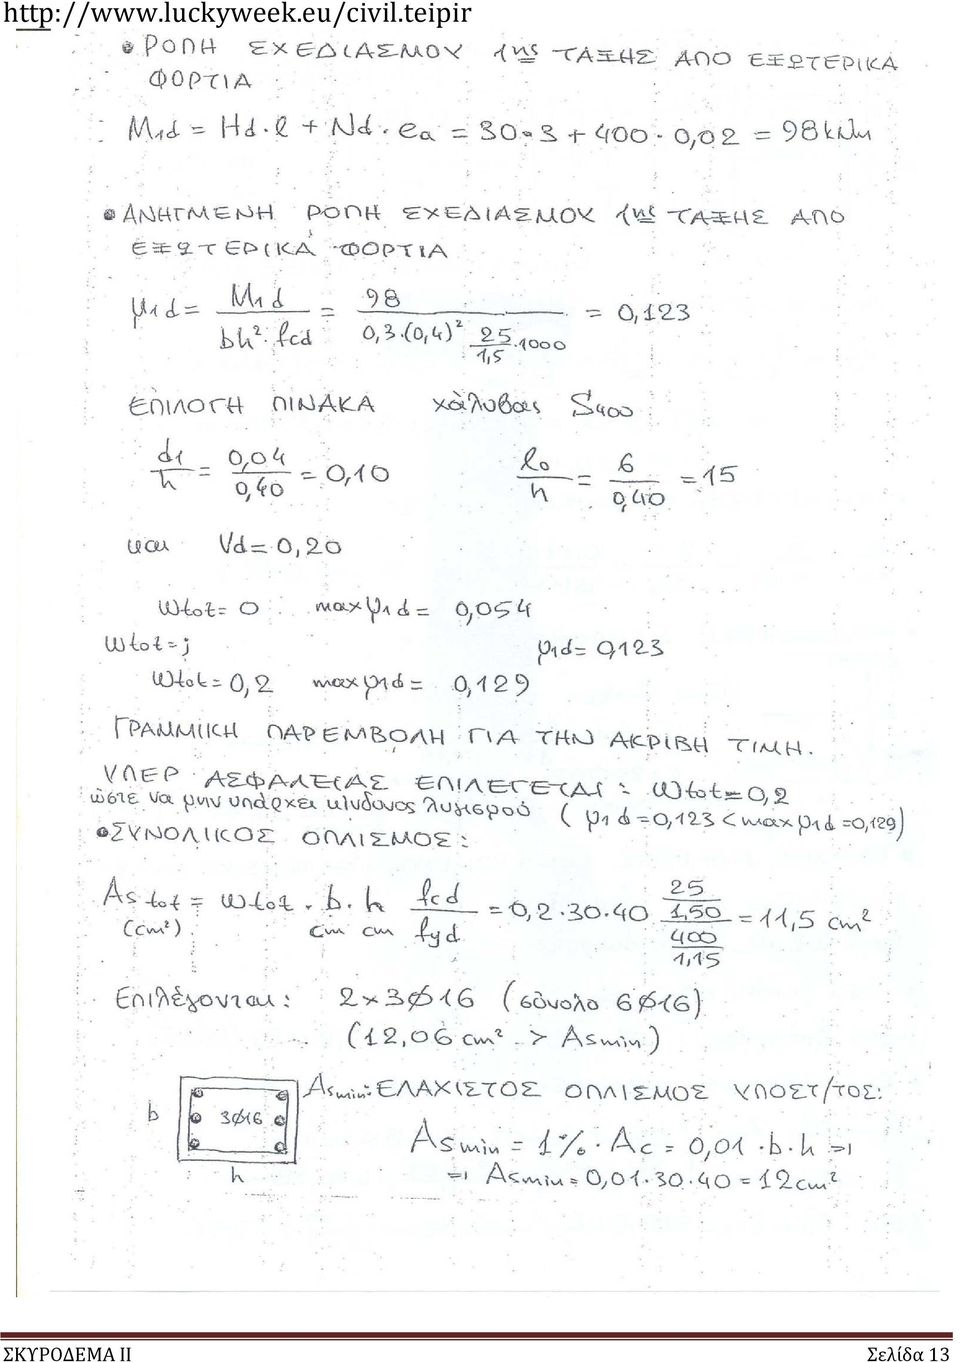 http://www.luckyweek.eu/civil.teipir
• ΡΟΠΗ ΣΧΕΔΙΑΣΜΟΥ 1ης ΤΑΞΗΣ ΑΠΟ ΕΞΩΤΕΡΙΚΑ
ΦΟΡΤΙΑ
M1d = Hd·l + Nd·ea = 30·3 + 400·0,02 = 98 kNm
• ΑΝΗΓΜΕΝΗ ΡΟΠΗ ΣΧΕΔΙΑΣΜΟΥ 1ης ΤΑΞΗΣ ΑΠΟ
ΕΞΩΤΕΡΙΚΑ ΦΟΡΤΙΑ
μ1d = M1d / (bh²·fcd) = 98 / (0,3·(0,4)² 25/1,5·1000) = 0,123
ΕΠΙΛΟΓΗ ΠΙΝΑΚΑ χάλυβας S400
d1/h = 0,04/0,40 = 0,10 lo/h = 6/0,40 = 15
και Vd = 0,20
ωtot = 0 max μ1d = 0,054
ωtot = ; μ1d = 0,123
ωtot = 0,2 max μ1d = 0,129
ΓΡΑΜΜΙΚΗ ΠΑΡΕΜΒΟΛΗ ΓΙΑ ΤΗΝ ΑΚΡΙΒΗ ΤΙΜΗ.
ΥΠΕΡ ΑΣΦΑΛΕΙΑΣ ΕΠΙΛΕΓΕΤΑΙ : ωtot = 0,2
ώστε να μην υπάρχει κίνδυνος λυγισμού ( μ1d = 0,123 < max μ1d = 0,129)
• ΣΥΝΟΛΙΚΟΣ ΟΠΛΙΣΜΟΣ :
As tot = ωtot · b · h fcd/fyd = 0,2·30·40 (25/1,50)/(400/1,15) = 11,5 cm²
(cm²) cm cm
Επιλέγονται : 2×3Ø16 (σύνολο 6Ø16)
(12,06 cm² > Asmin)
b 3Ø16 Asmin: ΕΛΑΧΙΣΤΟΣ ΟΠΛΙΣΜΟΣ ΥΠΟΣΤ/ΤΟΣ:
Asmin = 1% · Ac = 0,01 · b · h =>
h => Asmin = 0,01·30·40 = 12cm²
ΣΚΥΡΟΔΕΜΑ ΙΙ Σελίδα 13